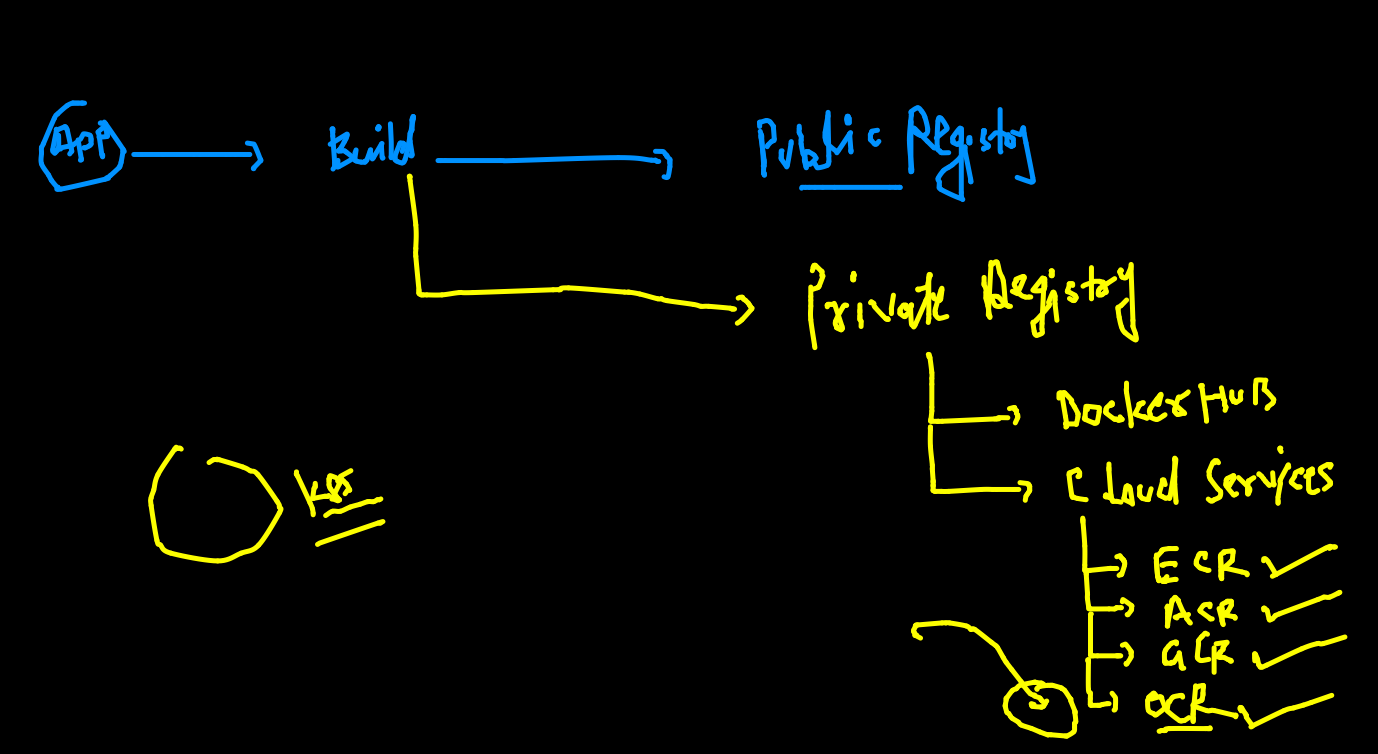 App
Build
Public Registry
Private Registry
DockerHuB
Cloud Services
K8s
ECR
ACR
GCR
OCR